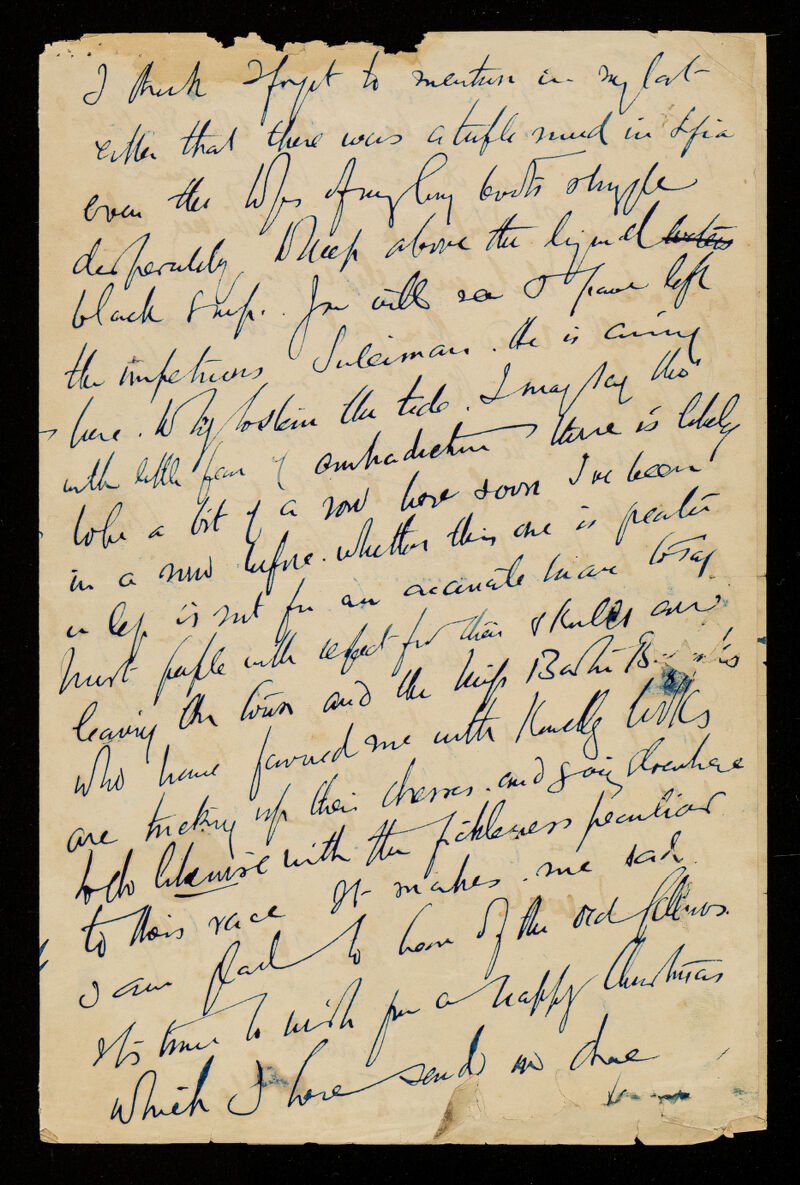 I think I forgot to mention in my last
letter that there was a terrible mud in Sofia
even the tops of my long boots struggle
desperately to keep above the liquid
black soup. You will see I have left
the impetuous Suleiman. He is coming
here. to stem the tide. I may say tho'
with little fear of contradiction there is likely
to be a bit of a row here soon I've been
in a row before. whether this one is greater
or less is not for an accurate man to say
Most people with respect for their skulls are
leaving the town and the Miss Bashi
who have favoured me with Kindly looks
are tucking up their dresses. and going elsewhere
to do likewise with the fickleness peculiar
to their race It makes me sad
I am glad to hear of the old fellows.
It's time to wish you a happy Christmas
which I here send in due